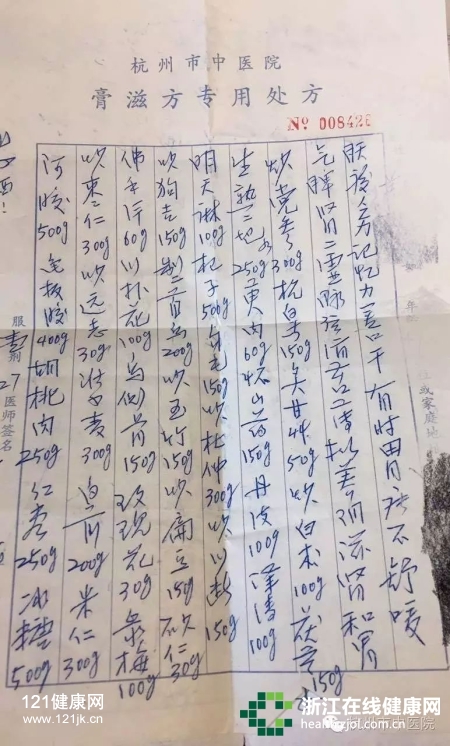 杭州市中医院
膏滋方专用处方
№ 008426
记忆力差口干有时胃脘不舒嗳
气脾肾二虚脉弦滑苔薄拟养阴滋肾和胃
炒党参300g杭白芍150g炙甘草50g炒白术100g茯苓150g
生熟二地各250g萸肉60g怀山药150g丹皮100g泽泻100g
明天麻100g杞子500g 150g炒杜仲300g炒川断150g
炒狗脊150g制首乌200g炒玉竹150g炒扁豆150g砂仁30g
佛手片60g川朴花100g乌侧骨150g玫瑰花30g绿梅100g
炒枣仁300g炒远志30g淮小麦300g 200g米仁300g
阿胶500g龟板胶400g胡桃肉250g红枣250g冰糖500g
医师签名
121健康网
www.121jk.cn
浙江在线健康网
health.zjol.com.cn
杭州市中医院